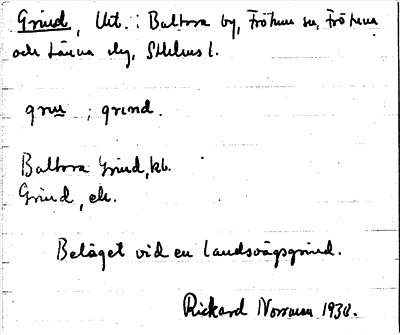 Grind, Utt.: Baltora by, Frötuna sn, Frötuna
och Länna slg, Sthlms l.
grın ; grınd.
Baltora Grind, kb.
Grind, ek.
Beläget vid en landsvägsgrind.
Rickard Norrman 1938.